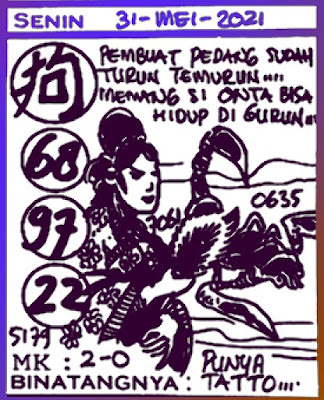 SENIN 31-MEI-2021
狗
PEMBUAT PEDANG SUDAH
TURUN TEMURUN....
MEMANG SI ONTA BISA
HIDUP DI GURUN...
68
97
22
0635
5179
MK : 2-0
PUNYA
BINATANGNYA : TATTO....